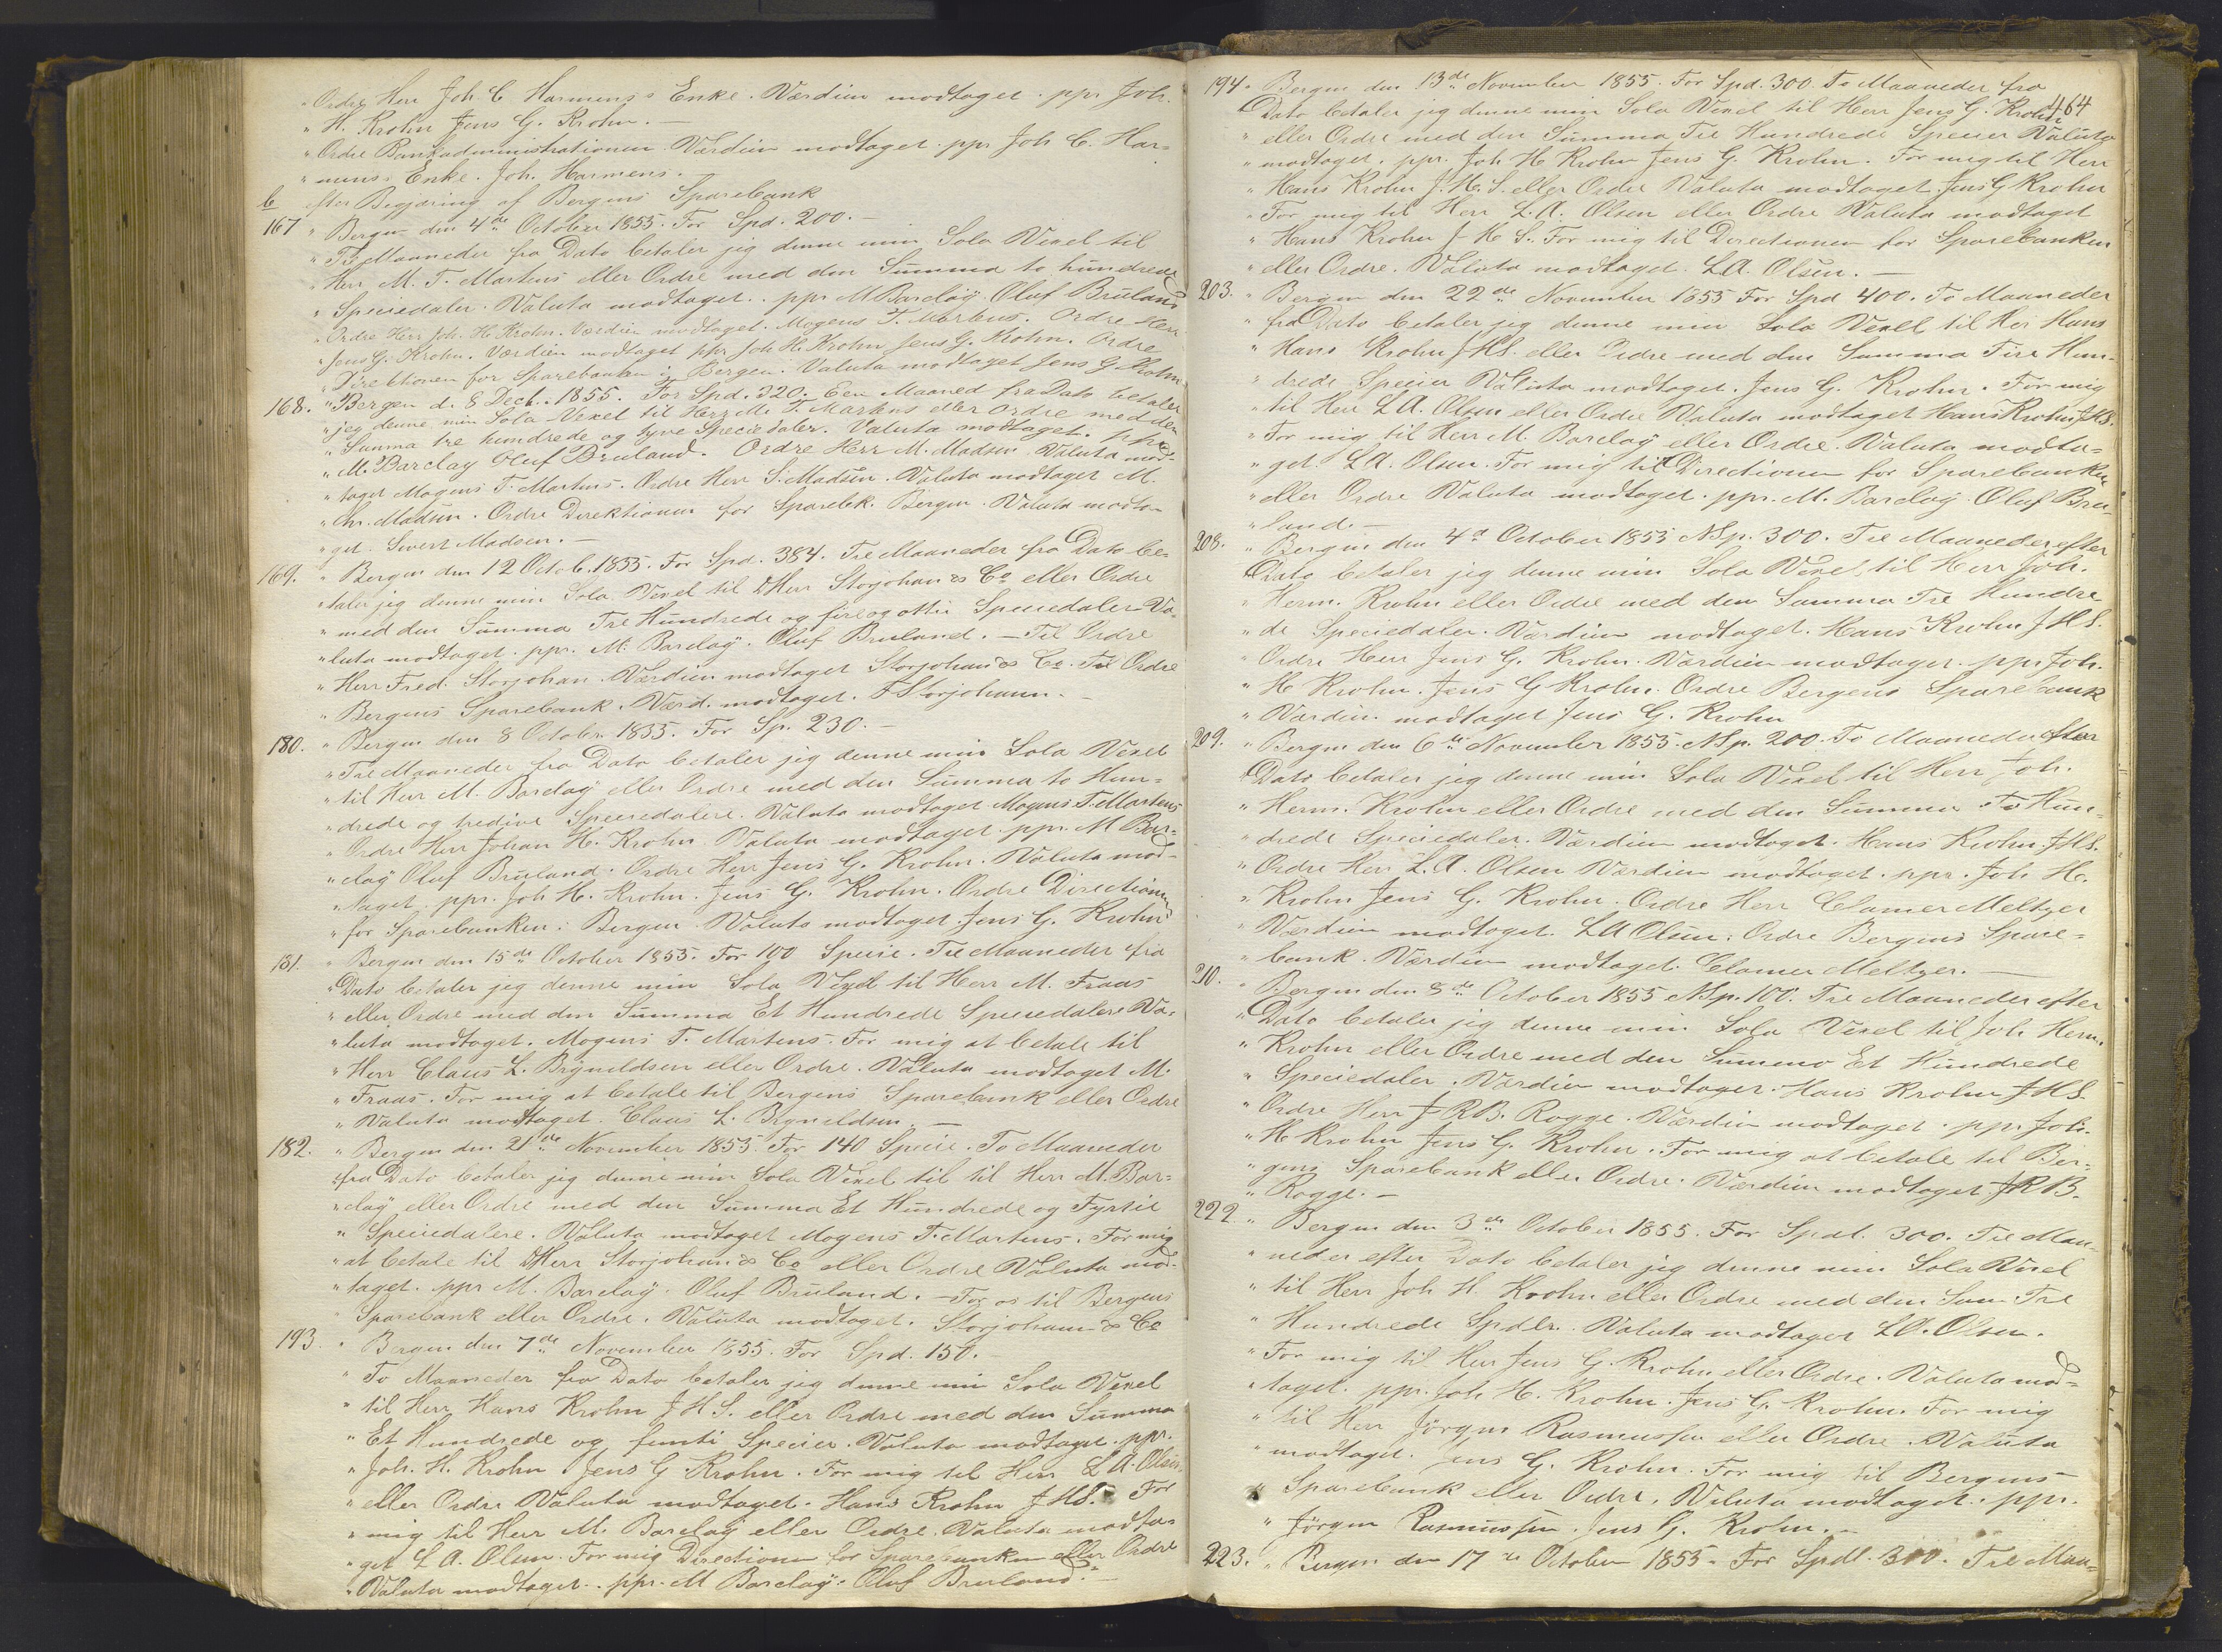 "Ordre Herr Joh. C Harmens's Enke. Værdien modtaget. ppr Joh.
"H. Krohn Jens G. Krohn. —
"Ordre Bankadministrationen Værdien modtaget. ppr Joh C. Har=
"mens's Enke. Joh. Harmens. —
b efter Begjæring af Bergens Sparebank
167 "Bergen den 4de October 1855. For Spd. 200. —
"Tre Maaneder fra Dato betaler jeg denne min Sola Vexel til
"Herr M. T. Martens eller Ordre med den Summa to hundrede
"Speciedaler. Valuta modtaget. ppr M Barclay Oluf Bruland
"Ordre Herr Joh. H. Krohn. Værdien modtaget. Mogens T. Martens. Ordre Herr
"Jens G. Krohn. Værdien modtaget ppr Joh H. Krohn Jens G. Krohn. Ordre
"Direktionen for Sparebanken i Bergen. Valuta modtaget Jens G. Krohn
168. "Bergen d. 8 Decb. 1855. For Spd. 320. Een Maaned fra Dato betaler
"jeg denne min Sola Vexel til Herr M. T. Martens eller ordre med den
"Summa tre hundrede og tyve Speciedaler. Valuta modtaget. ppr
"M. Barclay Oluf Bruland. Ordre Herr M. Madsen Valuta mod-
"taget Mogens T. Martens. Ordre Herr S. Madsen. Valuta modtaget M.
"Chr. Madsen. Ordre Direktionen for Sparebk. Bergen. Valuta modta-
"get. Sivert Madsen. —
169. "Bergen den 12 Octob. 1855. For Spd. 384. Tre Maaneder fra Dato be-
"taler jeg denne min Sola Vexel til DHerr Storjohan & Co eller Ordre
"med den Summa Tre Hundrede og fire og otti Speciedaler Va-
"luta modtaget. ppr. M. Barclay. Oluf Bruland. — Til Ordre
"Herr Fred. Storjohan Værdien modtaget Storjohan & Co. Til Ordre
"Bergens Sparebank. Værd. modtaget. F Storjohann. —
180. "Bergen den 8 Octobr 1855. For Sp. 230. —
"Tre Maaneder fra Dato betaler jeg denne min Sola Vexel
"til Herr M. Barclay eller Ordre med den Summa to Hun-
"drede og tredive Speciedalere. Valuta modtaget Mogens T. Martens
"Ordre Herr Johan H. Krohn Valuta modtaget ppr. M Bar=
"clay Oluf Bruland. Ordre Herr Jens G. Krohn. Valuta mod-
"taget. ppr. Joh H. Krohn. Jens G. Krohn. Ordre Directionen
"for Sparebanken i Bergen Valuta modtaget Jens G. Krohn
181. "Bergen den 15de October 1855. For 100 Specie. Tre Maaneder fra
"Dato betaler jeg denne min Sola Vexel til Herr M. Fraas
"eller Ordre med den Summa Et Hundrede Speciedalere Va-
"luta modtaget. Mogens T. Martens. For mig at betale til
"Herr Claus L. Brynildsen eller Ordre. Valuta modtaget M.
"Fraas. For mig at betale til Bergens Sparebank eller Ordre
"Valuta modtaget. Claus L. Brynildsen. —
182. "Bergen den 21de November 1855. For 140 Specie. To Maaneder
"fra Dato betaler jeg denne min Sola Vexel til til Herr M. Bar=
"clay eller Ordre med den Summa Et Hundrede og Fyrtie
"Speciedalere. Valuta modtaget Mogens T. Martens. For mig
"at betale til DHerr Storjohan & Co eller Ordre Valuta mod-
"taget. ppr M. Barclay. Oluf Bruland. — For os til Bergens
Sparebank eller Ordre. Valuta modtaget. Storjohann & Co
193. "Bergen den 7de November 1855. For Spd. 150. —
"To Maaneder fra Dato betaler jeg denne min Sola Vexel
"til Herr Hans Krohn J H S. eller Ordre med den Summa
"Et Hundrede og femti Specier. Valuta modtaget. ppr.
"Joh. H. Krohn Jens G Krohn. For mig til Herr L A. Olsen
"eller Ordre Valuta modtaget. Hans Krohn J HS. For
"mig til Herr M. Barclay eller Ordre. Valuta modta=
"get. L. A. Olsen. For mig Directionen for Sparebanken eller Ordre
"Valuta modtaget. ppr. M Barclay. Oluf Bruland. —
464
194. "Bergen den 13de November 1855. For Spd. 300. To Maaneder fra
"Dato betaler jeg denne min Sola Vexel til Herr Jens G. Krohn
"eller Ordre med den Summa Tre Hundrede Specier Valuta
"modtaget. ppr. Joh H. Krohn Jens G. Krohn. For mig til Herr
"Hans Krohn J. H. S. eller Ordre Valuta modtaget. Jens G Krohn
"For mig til Herr L. A. Olsen eller Ordre Valuta modtaget
"Hans Krohn J H S. For mig til Directionen for Sparebanken
"eller Ordre. Valuta modtaget. L.A. Olsen. —
203. "Bergen den 22de November 1855 For Spd 400. To Maaneder
"fra Dato betaler jeg denne min Sola Vexell til Her Hans
"Hans Krohn J H S. eller Ordre med den Summa Fire Hun-
"drede Specier Valuta modtaget. Jens G. Krohn. For mig
"til Herr L A. Olsen eller Ordre Valuta modtaget Hans Krohn JHS.
"For mig til Herr M. Barclay eller Ordre. Valuta modta=
"get. L A. Olsen. For mig til Directionen for Sparebanken
"eller Ordre Valuta modtaget. ppr. M. Barclay. Oluf Bru-
"land. —
208. "Bergen den 4d October 1855 NSp. 300. Tre Maaneder efter
"Dato betaler jeg denne min Sola Vexel til Herr Joh.
"Herm. Krohn eller Ordre med den Summa Tre Hundre
"de Speciedaler. Værdien modtaget. Hans Krohn J H S.
"Ordre Herr Jens G. Krohn. Værdien modtaget. ppr Joh.
"H Krohn. Jens G Krohn. Ordre Bergens Sparebank
"Værdien modtaget Jens G. Krohn
209. "Bergen den 6te November 1855. NSp. 200. To Maaneder efter
"Dato betaler jeg denne min Sola Vexel til Herr Joh.
"Herm. Krohn eller Ordre med den Summa To Hun-
"drede Speciedaler. Værdien modtaget. Hans Krohn JHS.
"Ordre Herr L. A. Olsen Værdien modtaget. ppr. Joh H.
"Krohn Jens G. Krohn. Ordre Herr Clamer Meltzer
"Værdien modtaget. L A Olsen. Ordre Bergens Spare=
"bank. Værdien modtaget. Clamer Meltzer. —
210. "Bergen den 8de October 1855 NSp. 100. Tre Maaneder efter
"Dato betaler jeg denne min Sola Vexel til Joh Herm.
"Krohn eller Ordre med den Summa Et Hundrede
"Speciedaler. Værdien modtaget. Hans Krohn J H S.
"Ordre Herr J R B. Rogge. Værdien modtaget. ppr. Joh.
"H Krohn Jens G. Krohn. For mig at betale til Ber=
"gens Sparebank eller Ordre. Værdien modtaget J R B.
"Rogge. —
222 "Bergen den 3de October 1855. For Spdl. 300. Tre Maa-
"neder efter Dato betaler jeg denne min Sola Vexel
"til Herr Joh H. Krohn eller Ordre med den Sum Tre
"Hundrede Spdlr. Valuta modtaget L A. Olsen.
"For mig til Herr Jens G. Krohn eller Ordre. Valuta mod=
"taget. ppr. Joh H. Krohn. Jens G. Krohn. For mig
"til Herr Jörgen Rasmussen eller Ordre. Valuta
"modtaget. Jens G. Krohn. For mig til Bergens
"Sparebank eller Ordre. Valuta modtaget. ppr.
"Jörgen Rasmussen. Jens G. Krohn. —
223. "Bergen den 17de October 1855. For Spdl. 300. Tre Maa=